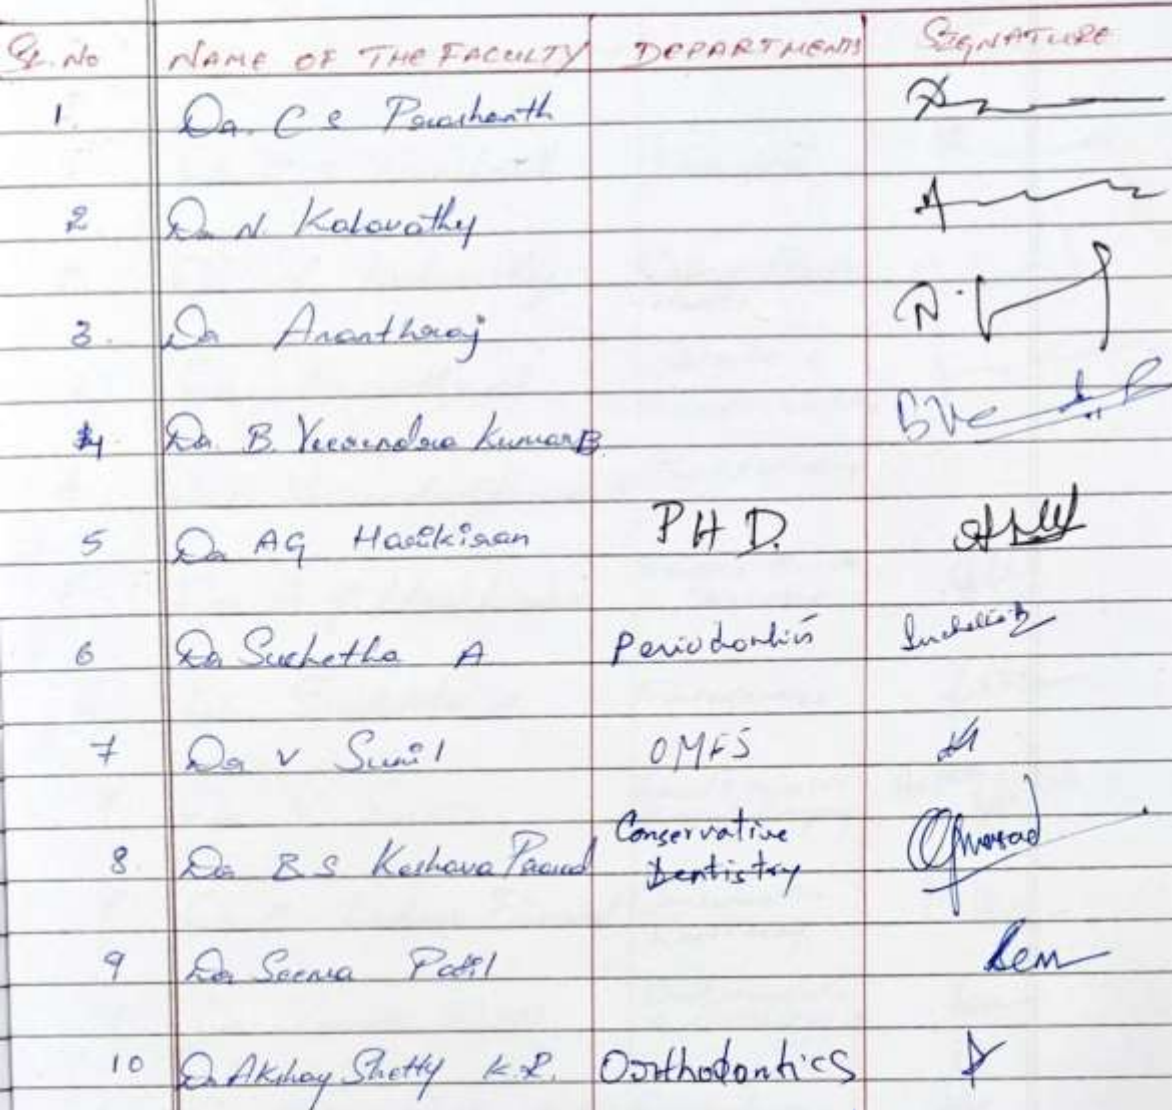 Sl. No NAME OF THE FACULTY DEPARTMENT SIGNATURE
1. Dr. C S Prashanth
2 Dr N. Kalavathy
3. Dr Anantharaj
4. Dr. B. Veerendra Kumar B
5 Dr AG Harikiran PHD.
6 Dr Suchetha A Periodontics
7 Dr V Sunil OMFS
8. Dr B S Keshava Prasad Conservative
Dentistry
9 Dr Seema Patil
10 Dr Akshay Shetty K.R. Oorthodontics